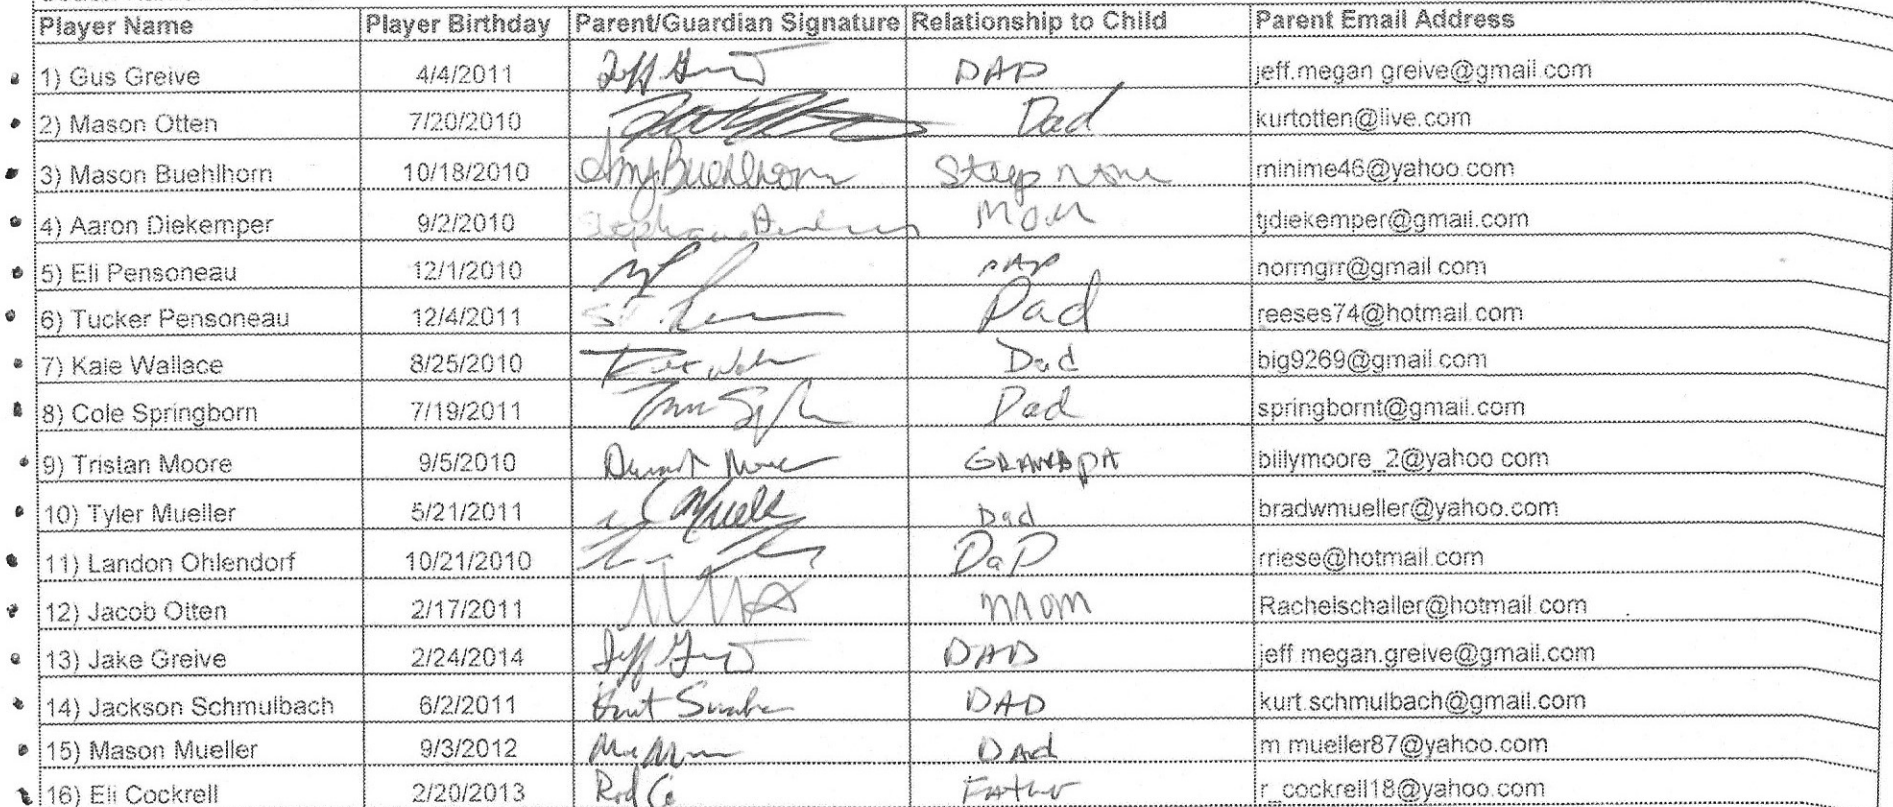 Player Name Player Birthday Parent/Guardian Signature Relationship to Child Parent Email Address
1) Gus Greive 4/4/2011 Jeff DAD jeff.megan.greive@gmail.com
2) Mason Otten 7/20/2010 Dad kurtotten@live.com
3) Mason Buehlhorn 10/18/2010 Amy Buehlhorn Step mom minime46@yahoo.com
4) Aaron Diekemper 9/2/2010 Mom tjdiekemper@gmail.com
5) Eli Pensoneau 12/1/2010 DAD normgrr@gmail.com
6) Tucker Pensoneau 12/4/2011 Dad reeses74@hotmail.com
7) Kale Wallace 8/25/2010 Dad big9269@gmail.com
8) Cole Springborn 7/19/2011 Dad springbornt@gmail.com
9) Tristan Moore 9/5/2010 GRANDPA billymoore_2@yahoo.com
10) Tyler Mueller 5/21/2011 Dad bradwmueller@yahoo.com
11) Landon Ohlendorf 10/21/2010 DaD rriese@hotmail.com
12) Jacob Otten 2/17/2011 Mom Rachelschaller@hotmail.com
13) Jake Greive 2/24/2014 Jeff DAD jeff.megan.greive@gmail.com
14) Jackson Schmulbach 6/2/2011 DAD kurt.schmulbach@gmail.com
15) Mason Mueller 9/3/2012 DAd m.mueller87@yahoo.com
16) Eli Cockrell 2/20/2013 Rod Father r_cockrell18@yahoo.com